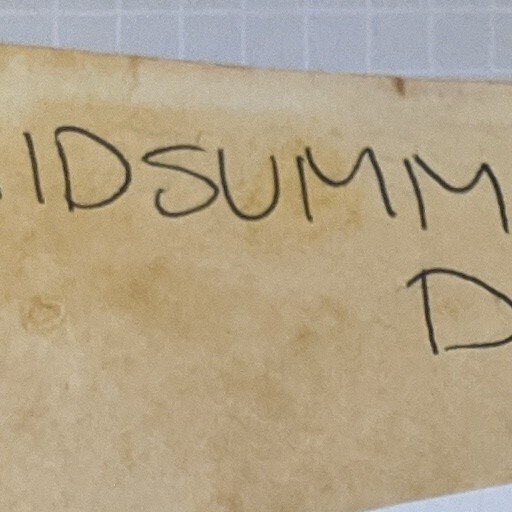 IDSUMM
D